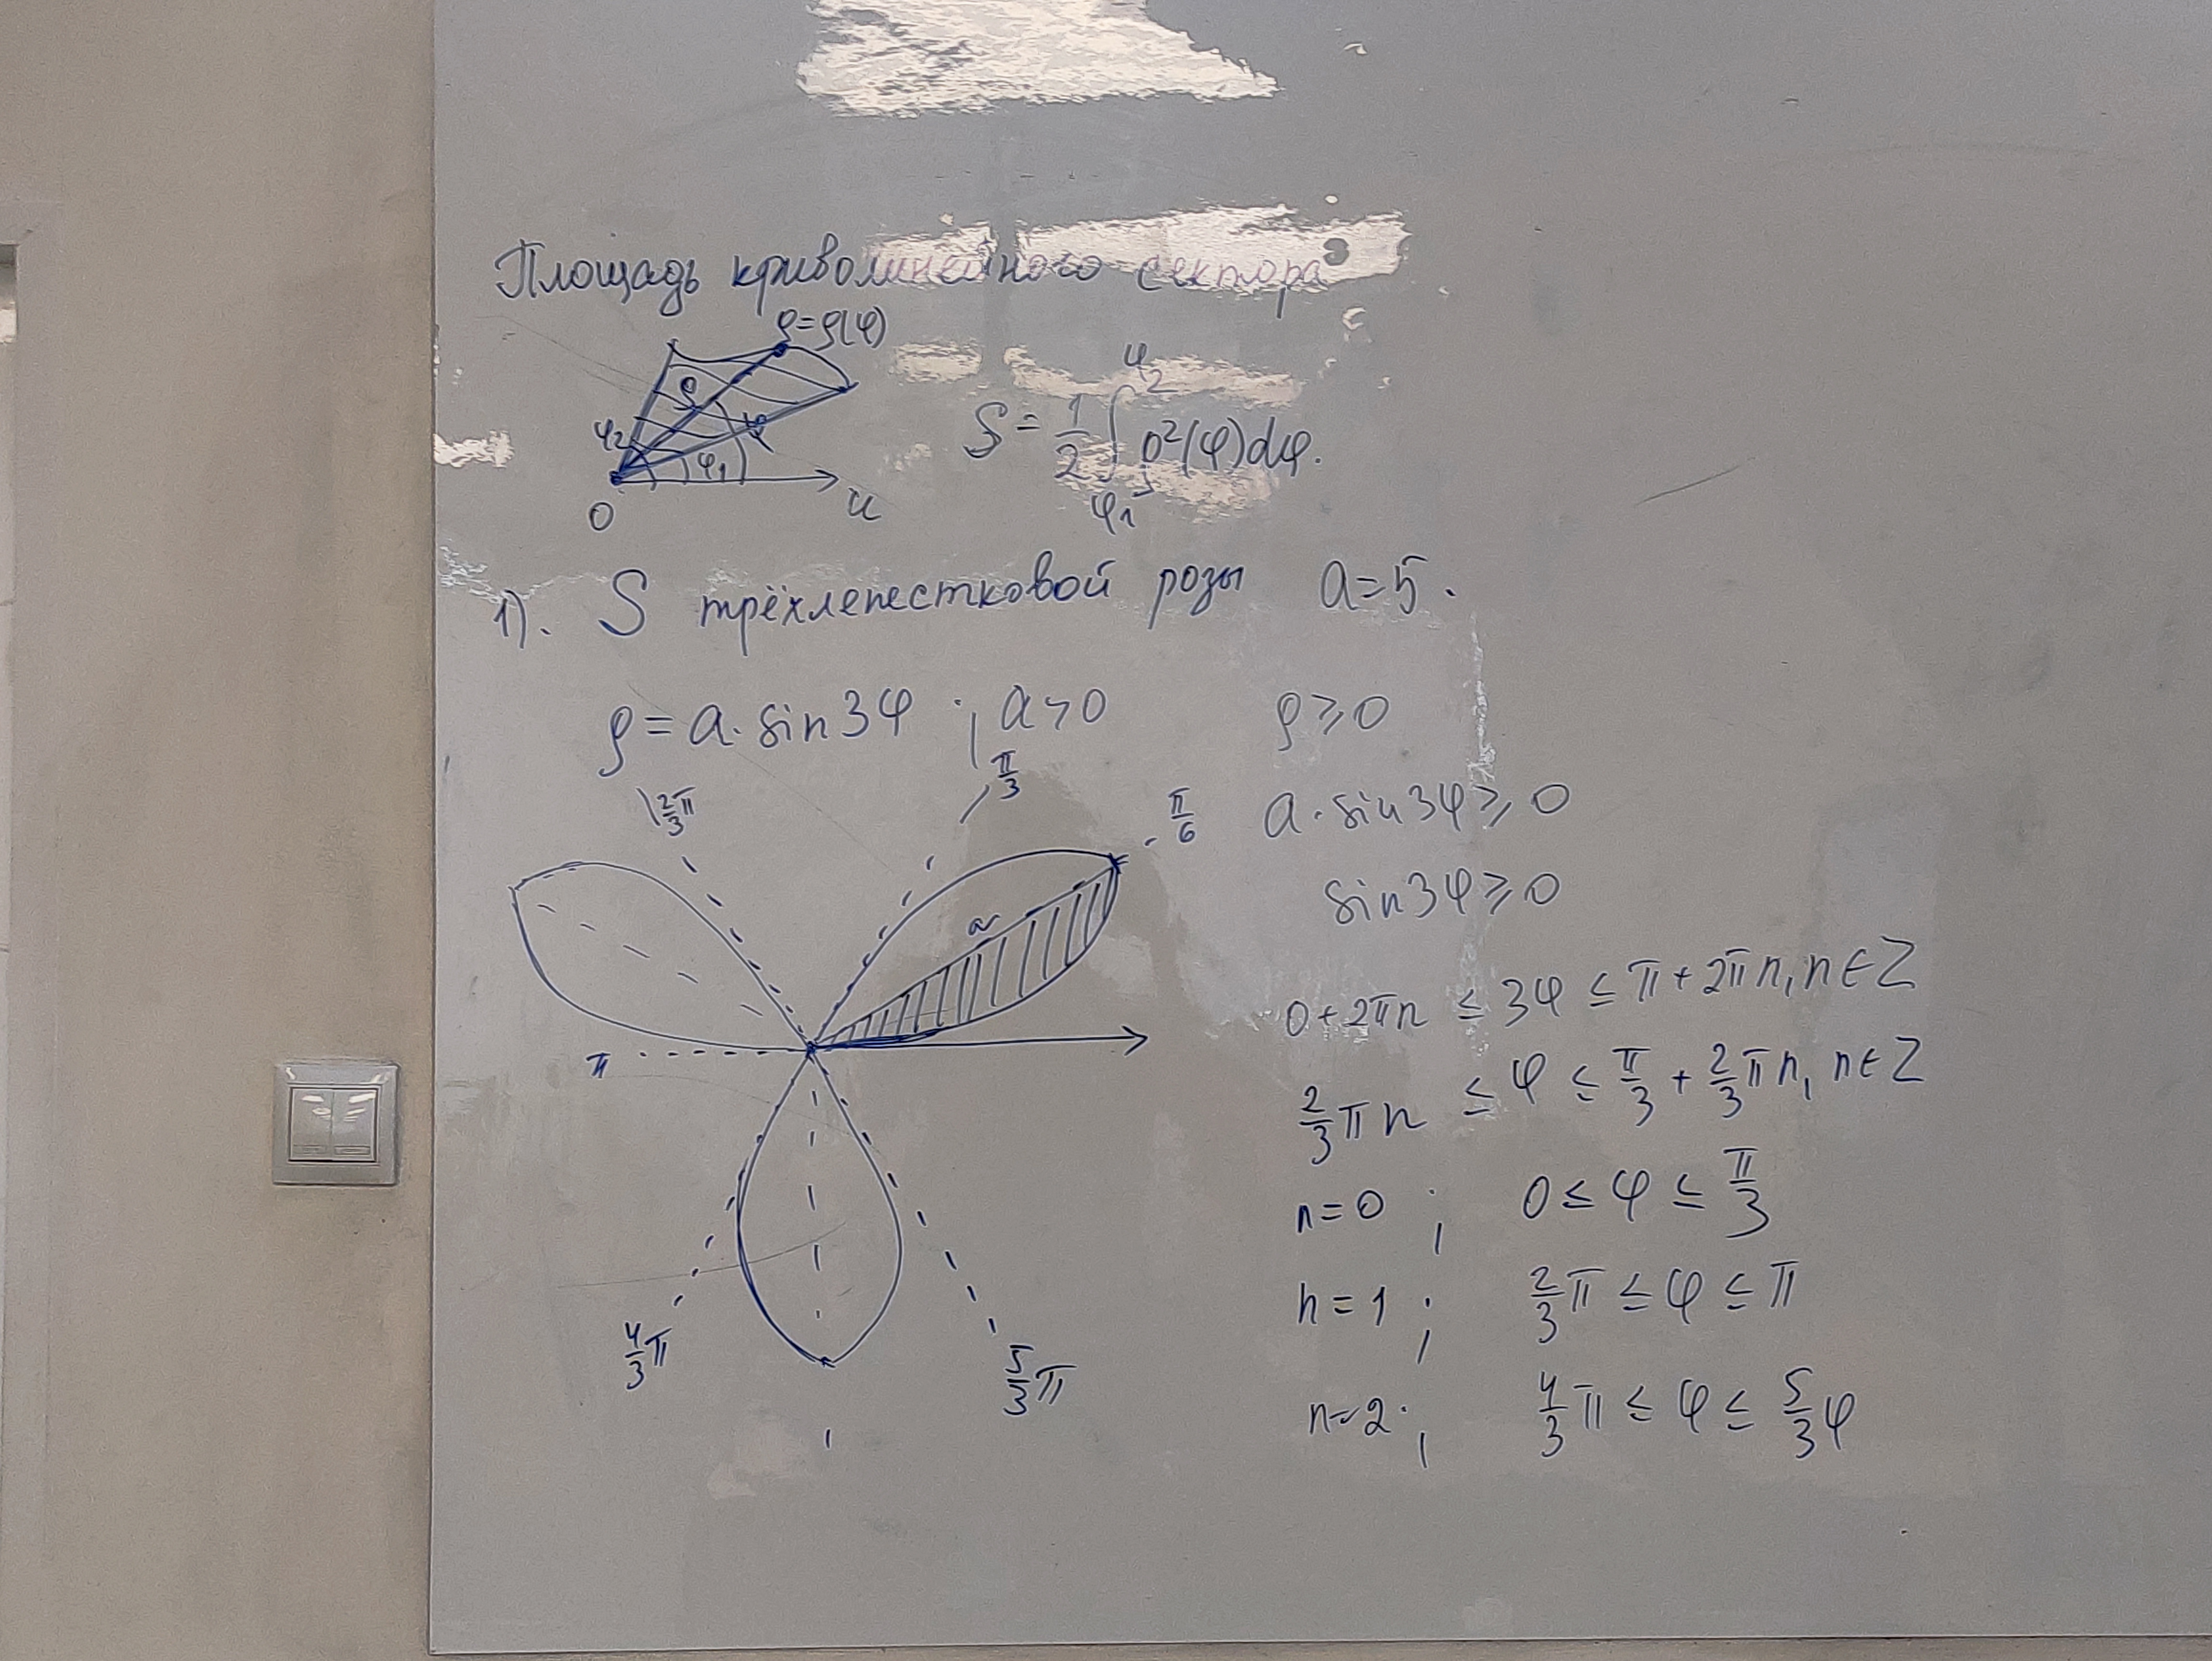 Площадь криволинейного сектора
ρ=ρ(φ)
ρ
φ2
φ
φ1
O
u
S = 1/2 ∫_{φ1}^{φ2} ρ²(φ)dφ.
1). S трёхлепестковой розы a=5.
ρ = a·sin3φ ; a>0
ρ⩾0
a·sin3φ⩾0
sin3φ⩾0
0+2πn ≤ 3φ ≤ π+2πn, n∈Z
2/3 πn ≤ φ ≤ π/3 + 2/3 πn, n∈Z
n=0 ; 0 ≤ φ ≤ π/3
n=1 ; 2/3 π ≤ φ ≤ π
n=2 ; 4/3 π ≤ φ ≤ 5/3 φ
2/3 π
π/3
π/6
a
π
4/3 π
5/3 π